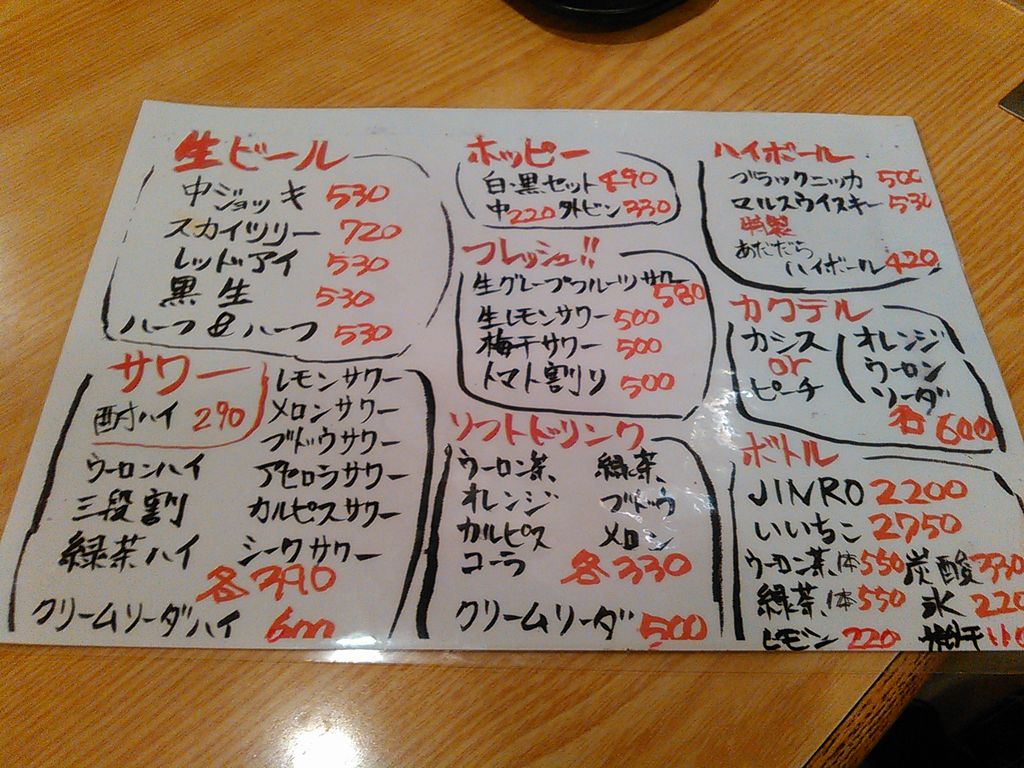 生ビール
中ジョッキ 530
スカイツリー 720
レッドアイ 530
黒生 530
ハーフ&ハーフ 530
サワー
酎ハイ 290
レモンサワー
メロンサワー
ブドウサワー
ウーロンハイ アセロラサワー
三段割 カルピスサワー
緑茶ハイ シークワサワー
各390
クリームソーダハイ 600
ホッピー
白・黒セット 490
中220 外ビン 330
フレッシュ!!
生グレープフルーツサワー 580
生レモンサワー 500
梅干サワー 500
トマト割り 500
ソフトドリンク
ウーロン茶 緑茶
オレンジ ブドウ
カルピス メロン
コーラ 各330
クリームソーダ 500
ハイボール
ブラックニッカ 500
マルスウイスキー 530
特製
あだたら
ハイボール 420
カクテル
カシス オレンジ
or ウーロン
ピーチ ソーダ
各600
ボトル
JINRO 2200
いいちこ 2750
ウーロン茶1体550 炭酸330
緑茶1体 550 氷 220
レモン 220 梅干110